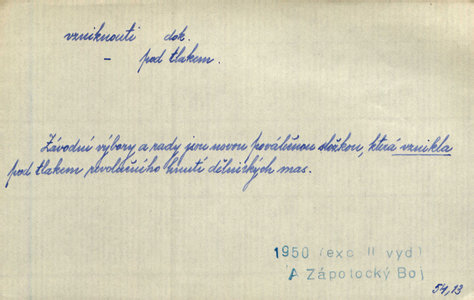 vzniknouti dok.
– pod tlakem.
Závodní výbory a rady jsou novou poválečnou složkou, která vznikla
pod tlakem revolučního hnutí dělnických mas.
1950 (exc II vyd)
A Zápotocký Boj
54,13